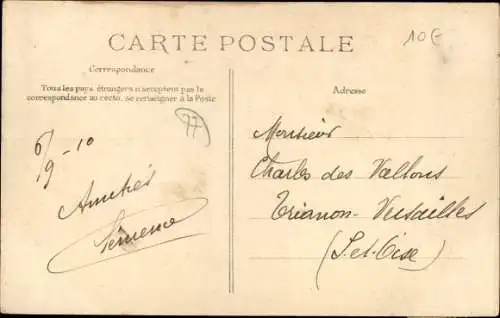 CARTE POSTALE
10€
Correspondance
Tous les pays étrangers n'acceptent pas la
correspondance au recto, se renseigner à la Poste
Adresse
77
6/9-10
Amitiés
Monsieur
Charles des Vallons
Trianon-Versailles
(S.-et-Oise)